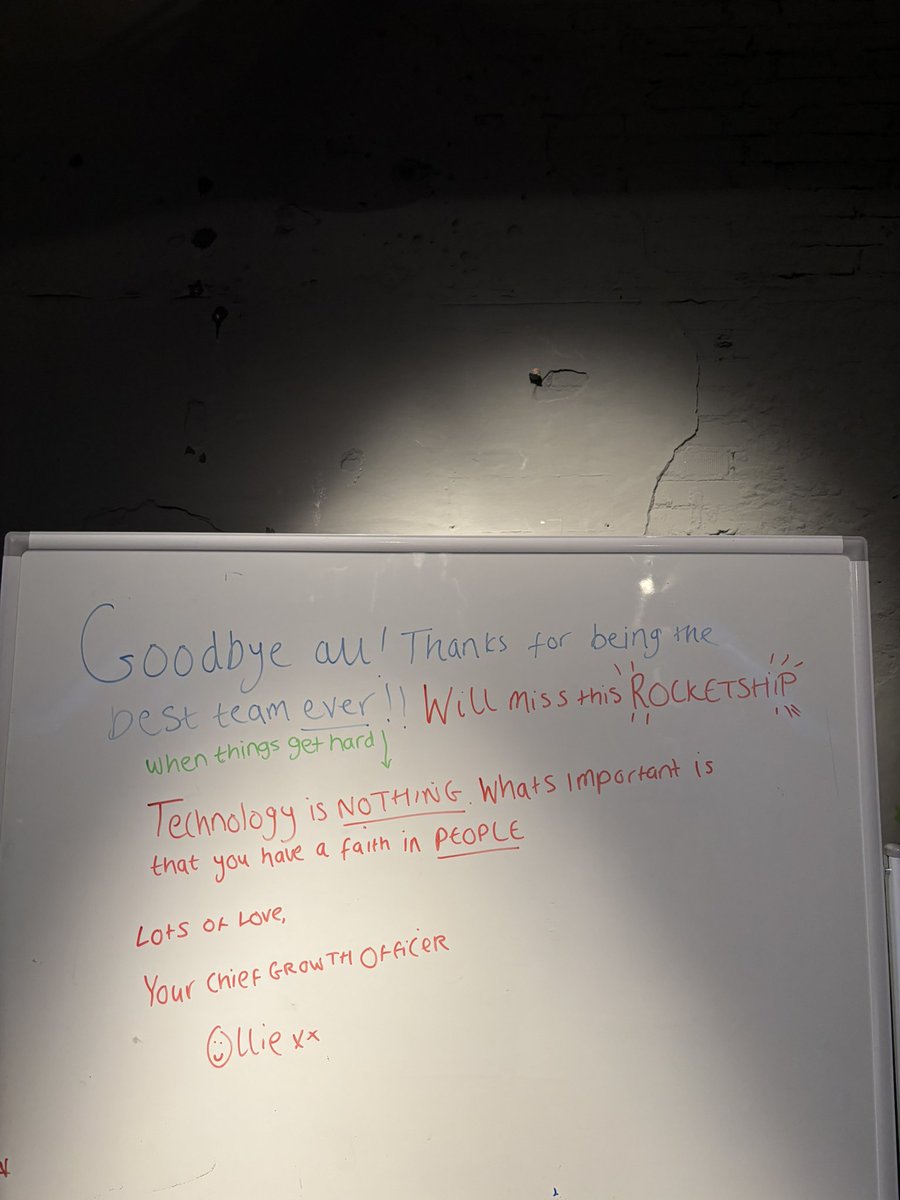 Goodbye all! Thanks for being the
best team ever!! Will miss this ROCKETSHiP
when things get hard
Technology is NOTHiNG. Whats important is
that you have a faith in PEOPLE
Lots of Love,
Your Chief Growth Officer
Ollie xx